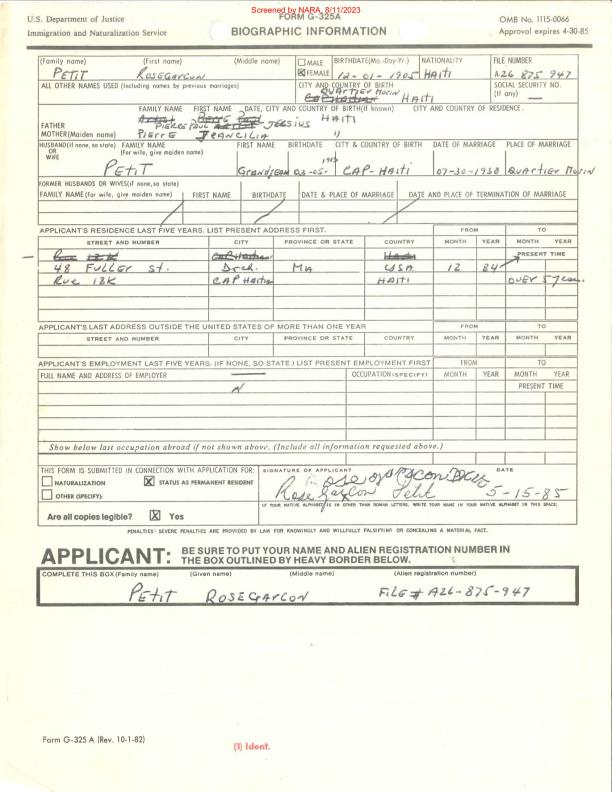 Screened by NARA, 8/11/2023
U.S. Department of Justice
Immigration and Naturalization Service
FORM G-325A
BIOGRAPHIC INFORMATION
OMB No. 1115-0066
Approval expires 4-30-85
(Family name) (First name) (Middle name) MALE FEMALE BIRTHDATE(Mo.-Day-Yr.) NATIONALITY FILE NUMBER
PETIT ROSEGARCON 12-01-1905 HAITI A26 875 947
ALL OTHER NAMES USED (Including names by previous marriages) CITY AND COUNTRY OF BIRTH SOCIAL SECURITY NO. (If any)
QUARTIER MORIN HAITI —
FAMILY NAME FIRST NAME DATE, CITY AND COUNTRY OF BIRTH(If known) CITY AND COUNTRY OF RESIDENCE.
FATHER PIERRE PAUL HAITI
MOTHER(Maiden name) PIERRE
HUSBAND(If none, so state) OR WIFE FAMILY NAME (For wife, give maiden name) FIRST NAME BIRTHDATE CITY & COUNTRY OF BIRTH DATE OF MARRIAGE PLACE OF MARRIAGE
PETIT GRANDJEAN 03-05- CAP-HAITI 07-30-1938 QUARTIER MORIN
FORMER HUSBANDS OR WIVES(if none, so state)
FAMILY NAME (For wife, give maiden name) FIRST NAME BIRTHDATE DATE & PLACE OF MARRIAGE DATE AND PLACE OF TERMINATION OF MARRIAGE
APPLICANT'S RESIDENCE LAST FIVE YEARS. LIST PRESENT ADDRESS FIRST. FROM TO
STREET AND NUMBER CITY PROVINCE OR STATE COUNTRY MONTH YEAR MONTH YEAR
Rue 18K CAP Haitian Haiti PRESENT TIME
48 FULLER St. Drch. MA USA 12 84
Rue 18K CAP Haitien HAITI OVER 5 years.
APPLICANT'S LAST ADDRESS OUTSIDE THE UNITED STATES OF MORE THAN ONE YEAR FROM TO
STREET AND NUMBER CITY PROVINCE OR STATE COUNTRY MONTH YEAR MONTH YEAR
APPLICANT'S EMPLOYMENT LAST FIVE YEARS. (IF NONE, SO STATE.) LIST PRESENT EMPLOYMENT FIRST FROM TO
FULL NAME AND ADDRESS OF EMPLOYER OCCUPATION(SPECIFY) MONTH YEAR MONTH YEAR
N PRESENT TIME
Show below last occupation abroad if not shown above. (Include all information requested above.)
THIS FORM IS SUBMITTED IN CONNECTION WITH APPLICATION FOR: SIGNATURE OF APPLICANT DATE
NATURALIZATION X STATUS AS PERMANENT RESIDENT
OTHER (SPECIFY): Rose Garcon Petit 5-15-85
IF YOUR NATIVE ALPHABET IS IN OTHER THAN ROMAN LETTERS, WRITE YOUR NAME IN YOUR NATIVE ALPHABET IN THIS SPACE:
Are all copies legible? X Yes
PENALTIES: SEVERE PENALTIES ARE PROVIDED BY LAW FOR KNOWINGLY AND WILLFULLY FALSIFYING OR CONCEALING A MATERIAL FACT.
APPLICANT: BE SURE TO PUT YOUR NAME AND ALIEN REGISTRATION NUMBER IN
THE BOX OUTLINED BY HEAVY BORDER BELOW.
COMPLETE THIS BOX (Family name) (Given name) (Middle name) (Alien registration number)
PETIT ROSEGARCON FILE # A26-875-947
Form G-325 A (Rev. 10-1-82)
(1) Ident.